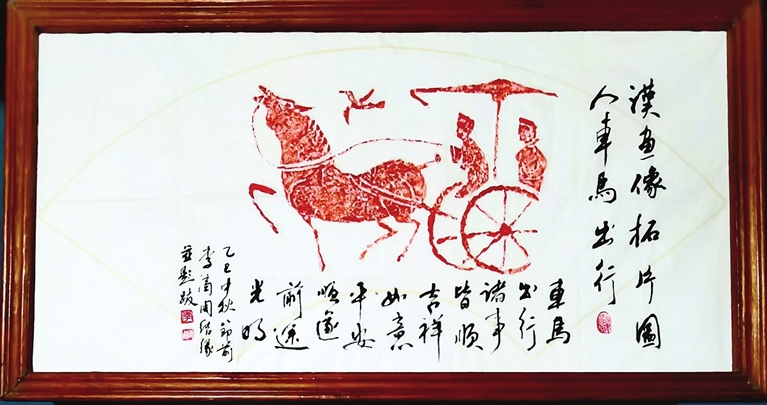 漢畫像拓片圖
人車馬出行
車馬
出行
諸事
皆順
吉祥
如意
平安
順遂
前途
光明
乙巳中秋節前
李結緣
並題跋